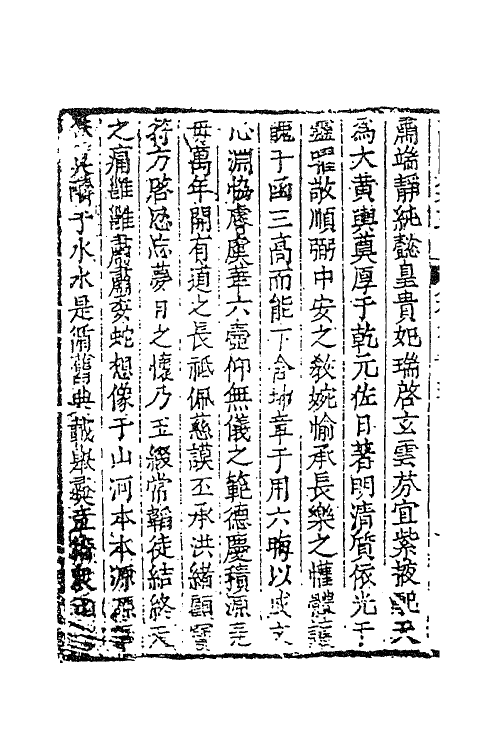 肅端靜純懿皇貴妃瑞啓玄雲芬宜紫掖配天
為大黄輿奠厚于乾元佐日著明清質依光于
盛罷敬順弼中安之敎婉愉承長樂之懽體
于函三高而能下含坤章于用六晦以
心淵恊虞華六壼仰無儀之範德慶積源
毋萬年開有道之長祗佩慈謨丕承洪緒顧寶
符方啓忍忘夢日之懷乃玉綴常韜徒結終天
之痛雝雝肅肅委蛇想像于山河本本源源
于水水是循舊典載舉彝章